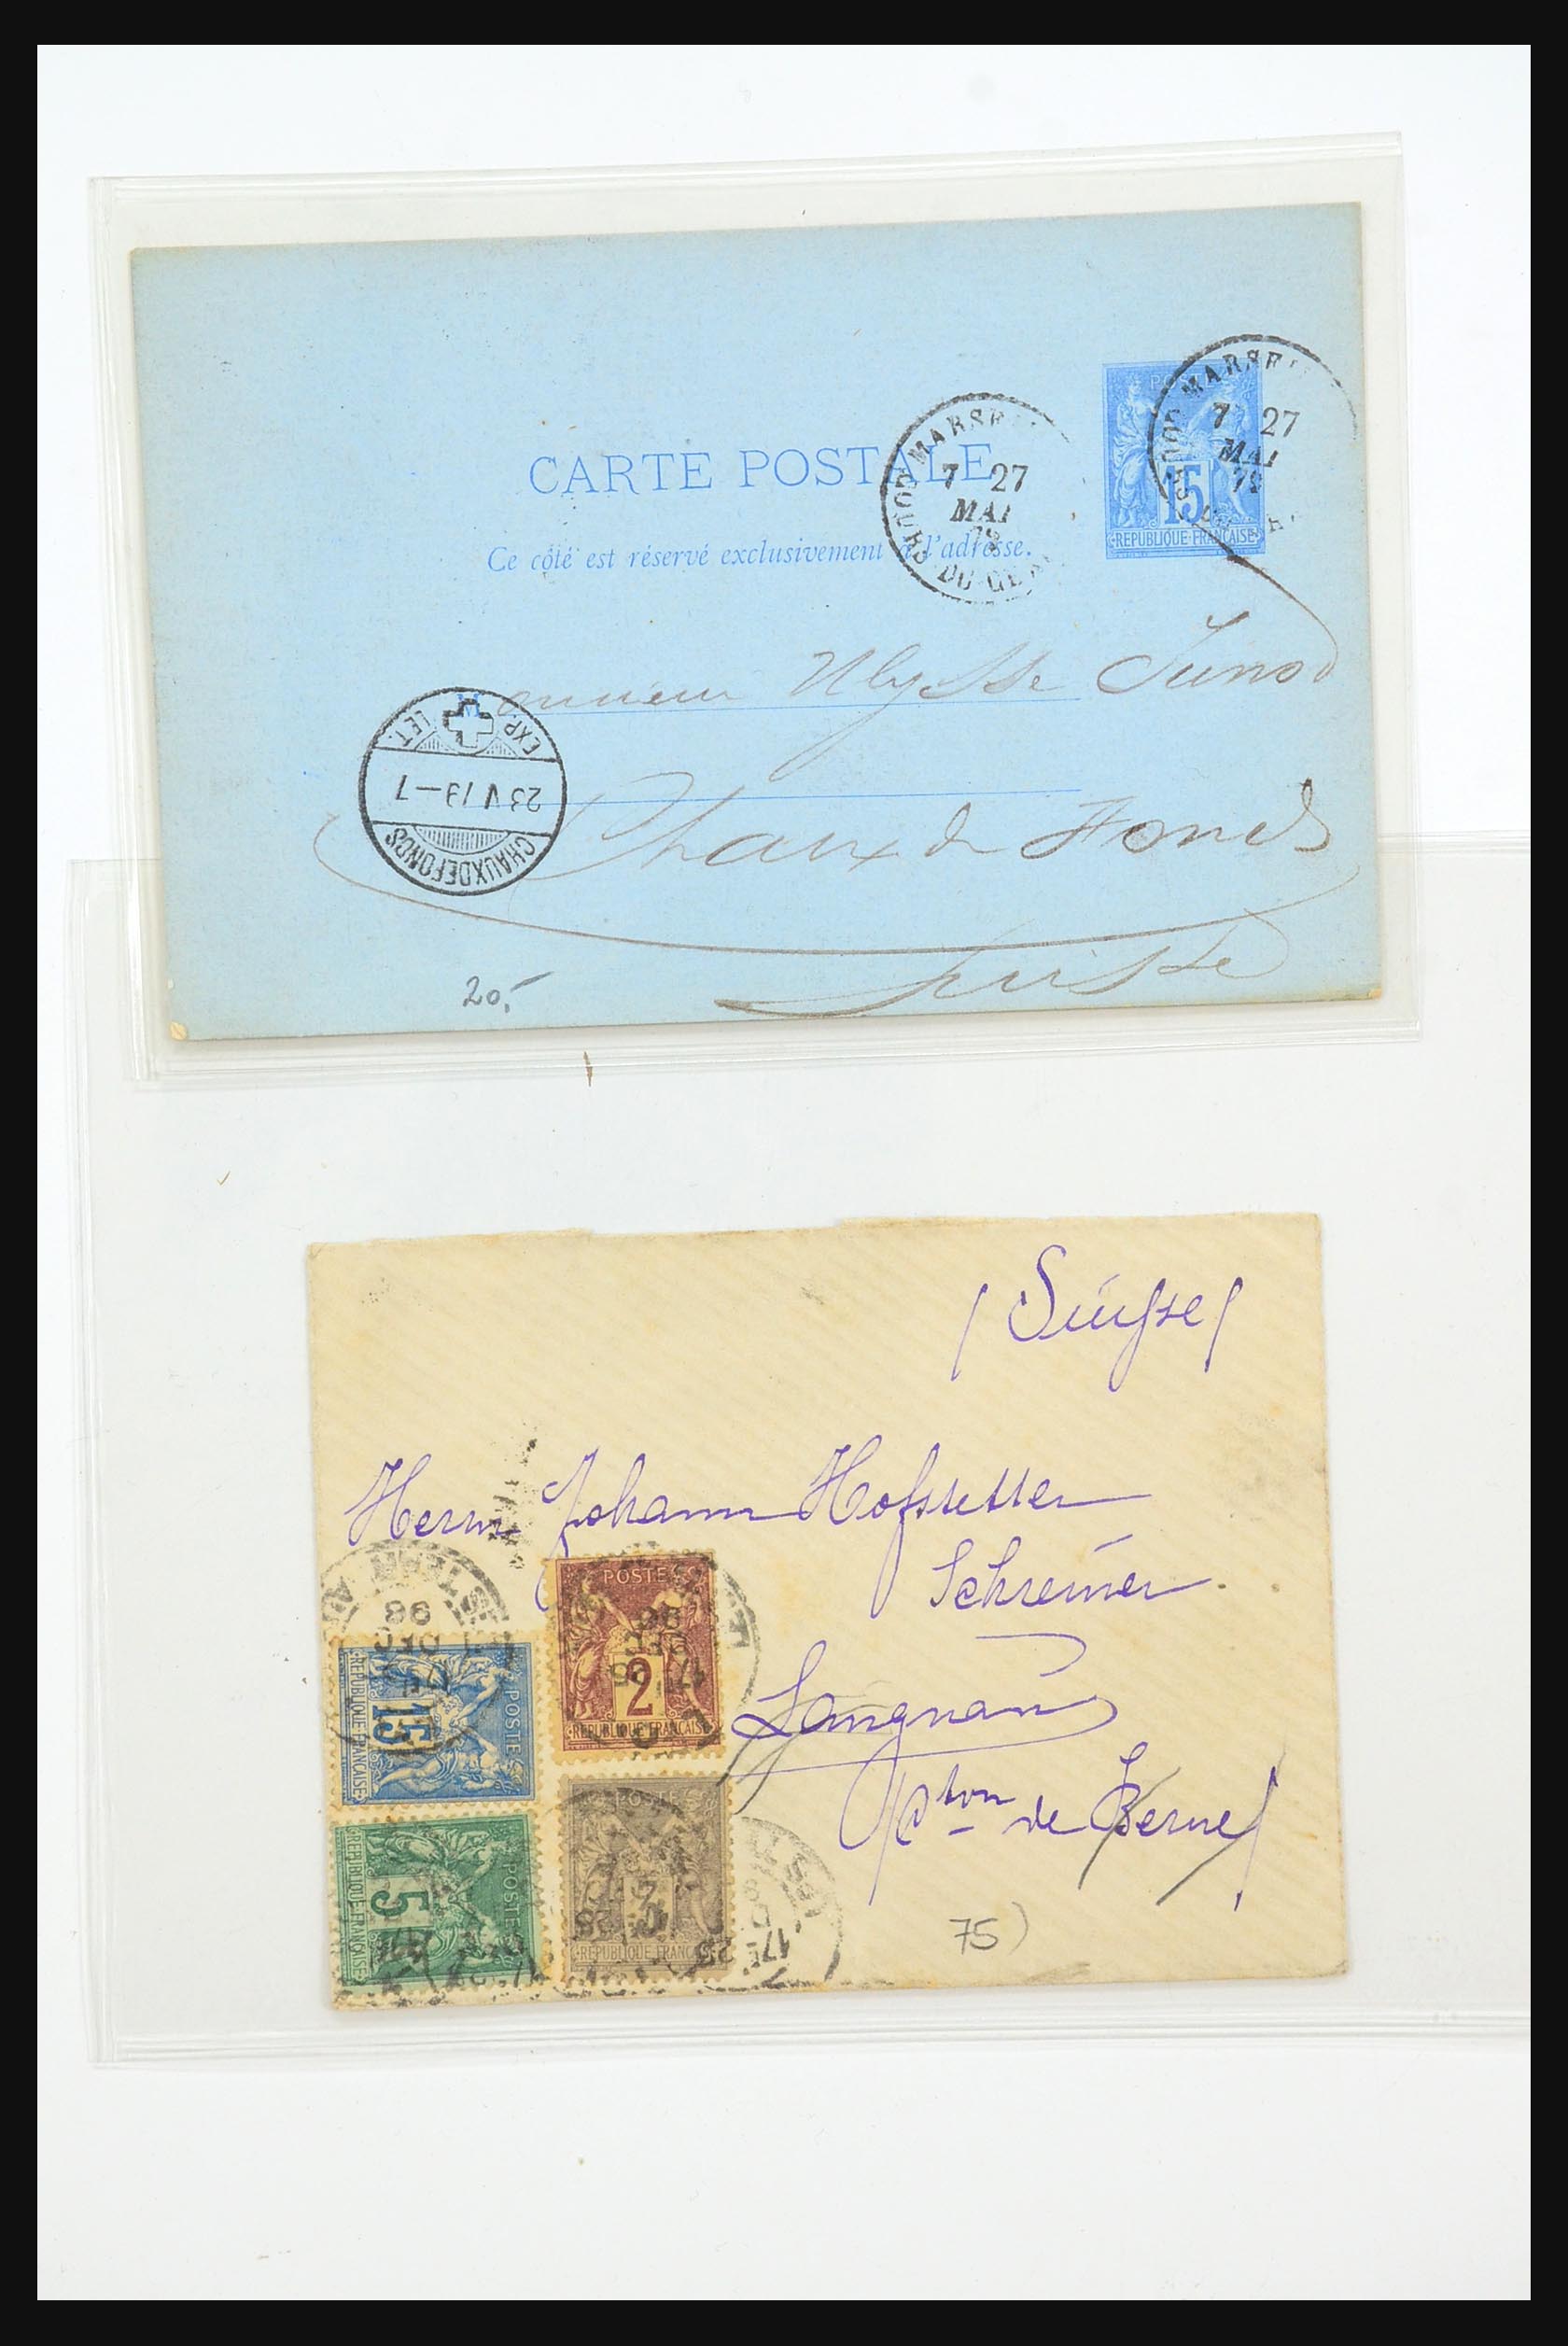 CARTE POSTALE
Ce côté est réservé exclusivement à l'adresse.
POSTES
15
REPUBLIQUE FRANÇAISE
MARSEI
7 27
MAI
79
MARSE
7 27
MAI
79
Monsieur Ulysse Junod
Chaux de Fonds
Suisse
EXP. LET.
23 V 79–7
CHAUXDEFONDS
20,-
(Suisse)
Herrn Johann Hofstetter
Schreiner.
Langnau
(Cton de Berne)
POSTES
2
REPUBLIQUE FRANÇAISE
POSTES
15
REPUBLIQUE FRANÇAISE
POSTES
5
REPUBLIQUE FRANÇAISE
POSTES
REPUBLIQUE FRANÇAISE
75)